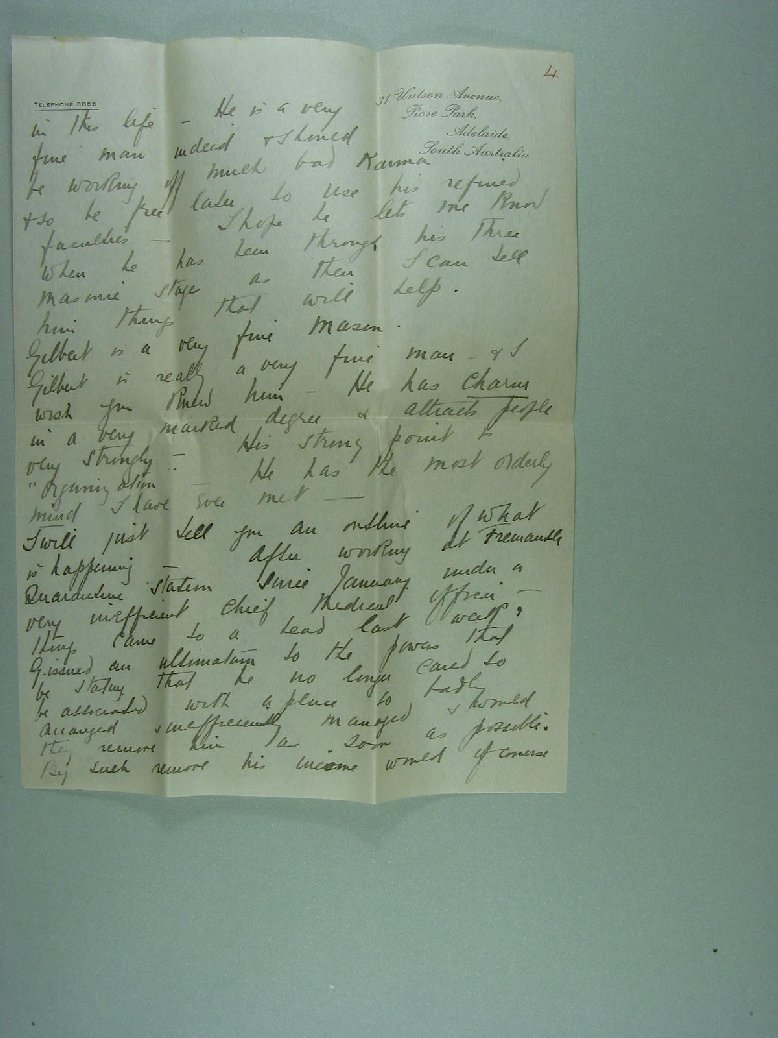 4
TELEPHONE
31 Watson Avenue,
Rose Park,
Adelaide,
South Australia
in this life – He is a very
fine man indeed & should
be working off much bad Karma
& so be free later to use his refined
faculties – I hope he lets me know
when he has been through his three
masonic stages as then I can tell
him things that will help.
Gilbert is a very fine mason.
Gilbert is really a very fine man – & I
wish you knew him – He has charm
in a very marked degree & attracts people
very strongly – His strong point is
"organization" – He has the most orderly
mind I have ever met –
I will just tell you an outline of what
is happening – After working at Fremantle
Quarantine Station since January under a
very inefficient Chief Medical officer –
things came to a head last week,
G. issued an ultimatum to the powers that
be stating that he no longer cared to
be associated with a place so badly
arranged & inefficiently managed & would
they remove him as soon as possible.
By such remove his income would of course